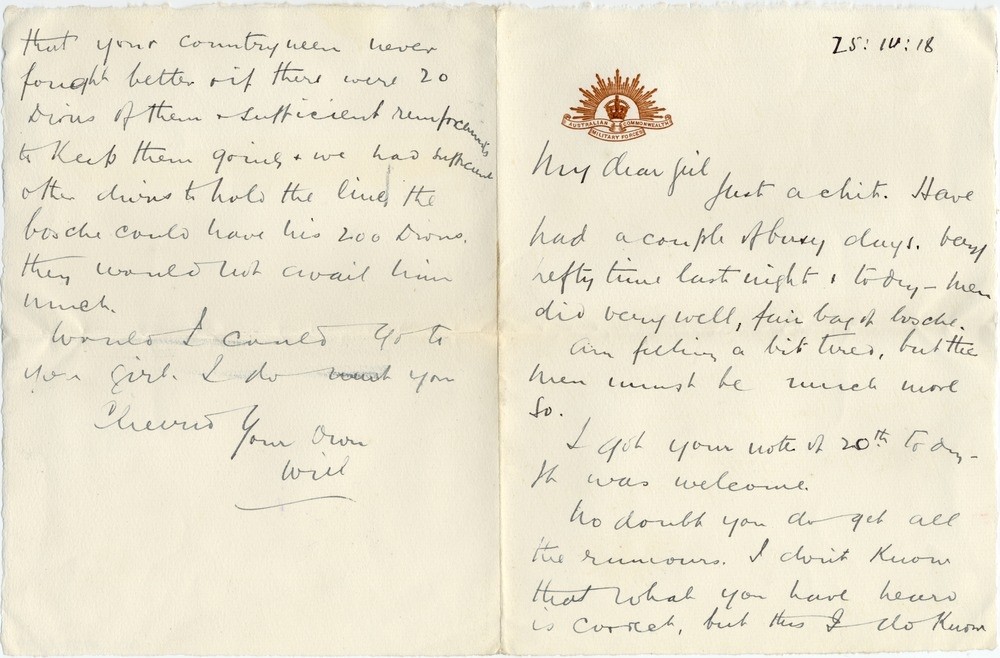 25: IV: 18
AUSTRALIAN COMMONWEALTH
MILITARY FORCES
My dear girl
Just a chit. Have
had a couple of busy days. very
hefty time last night & today – men
did very well, fair bag of bosche.
Am feeling a bit tired, but the
men must be much more
so.
I got your note of 20th today –
It was welcome.
No doubt you do get all
the rumours. I don't know
that what you have heard
is correct, but this I do know
that your countrymen never
fought better & if there were 20
Divns of them & sufficient reinforcements
to keep them going & we had sufficient
other divns to hold the line, the
bosche could have his 200 Divns.
they would not avail him
much.
Would I could go to
you girl. I do want you
Cheerio Your Own
Will